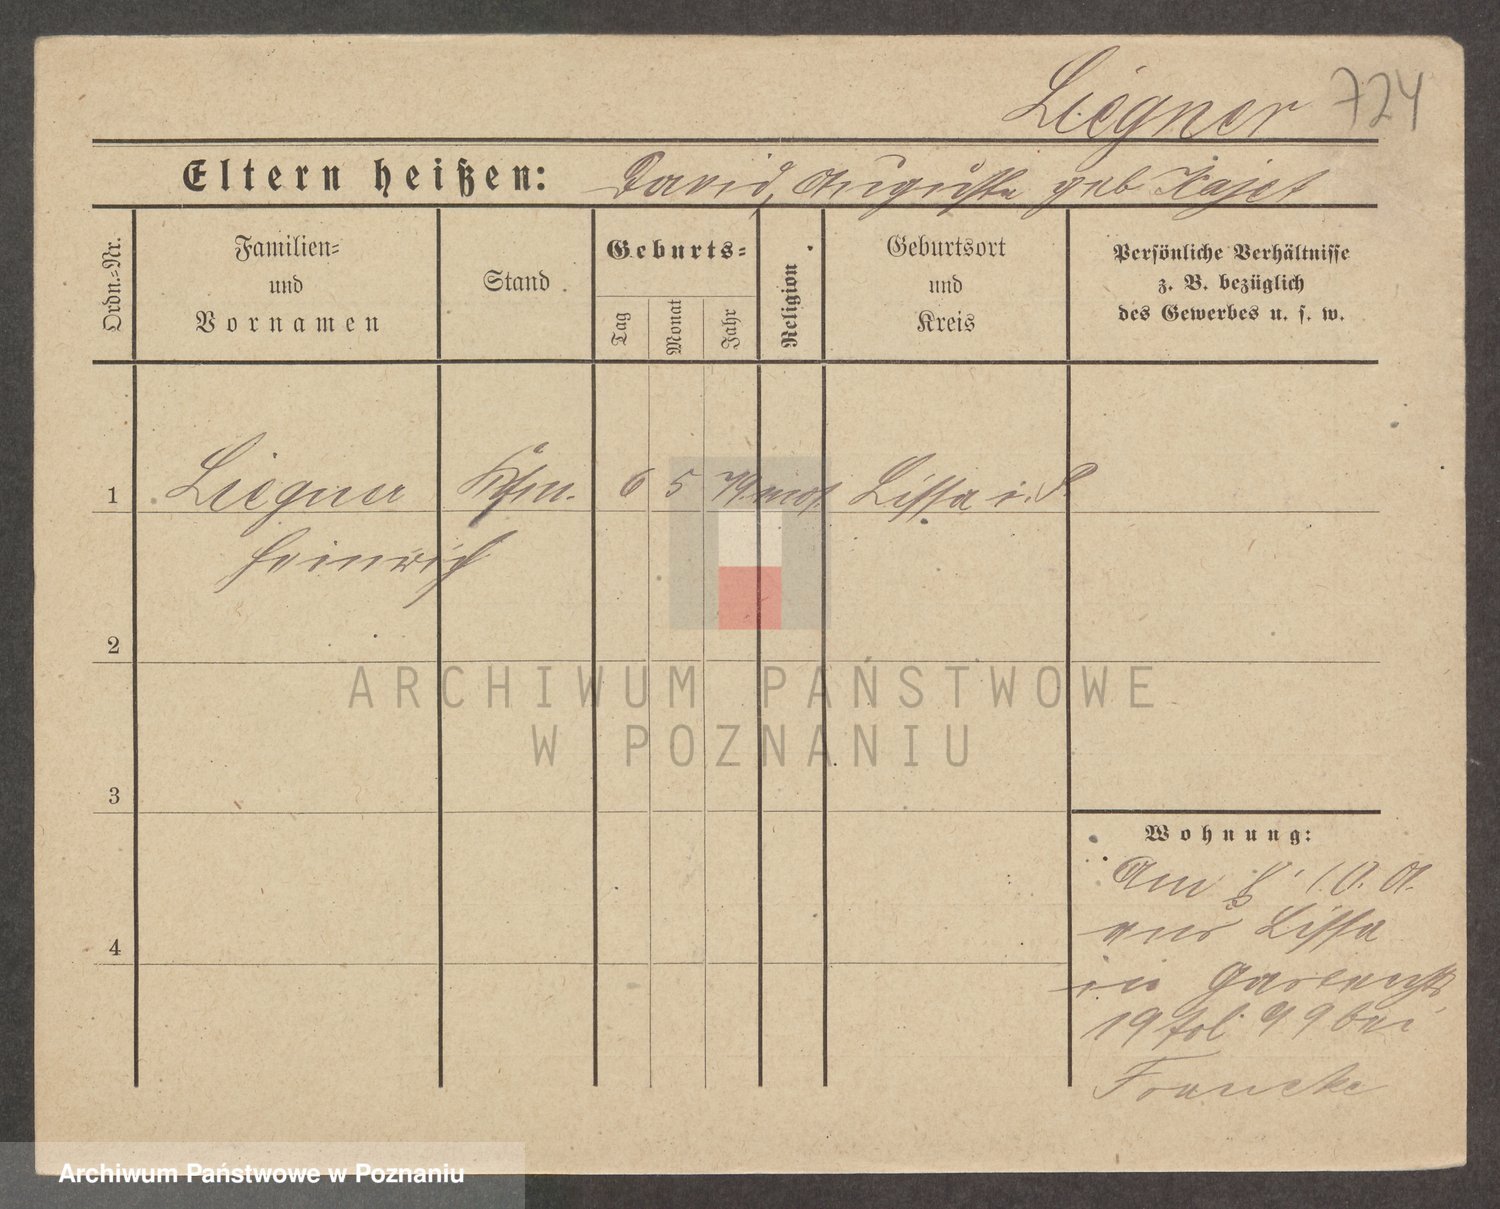 Liegner 724
Eltern heißen: David, Auguste geb Kajet
Ordn.=Nr.
Familien=
und
Vornamen
Stand
Geburts=
Tag
Monat
Jahr
Religion
Geburtsort
und
Kreis
Persönliche Verhältnisse
z. B. bezüglich
des Gewerbes u. s. w.
1 Liegner Kfm. 6 5 79 mos. Lissa i. P.
Heinrich
2
3
4
Wohnung:
Am 10. A.
aus Lissa
in
19 fol 99 bei
Francke
ARCHIWUM PAŃSTWOWE
W POZNANIU
Archiwum Państwowe w Poznaniu